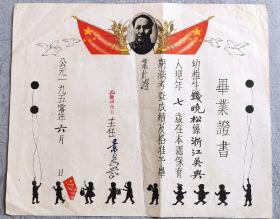 畢業證書
幼稚生錢曉松係浙江吳興
人現年七歲在本園保育
期滿考查成績及格准予畢
業此證
主任
公元一九五零年六月 日